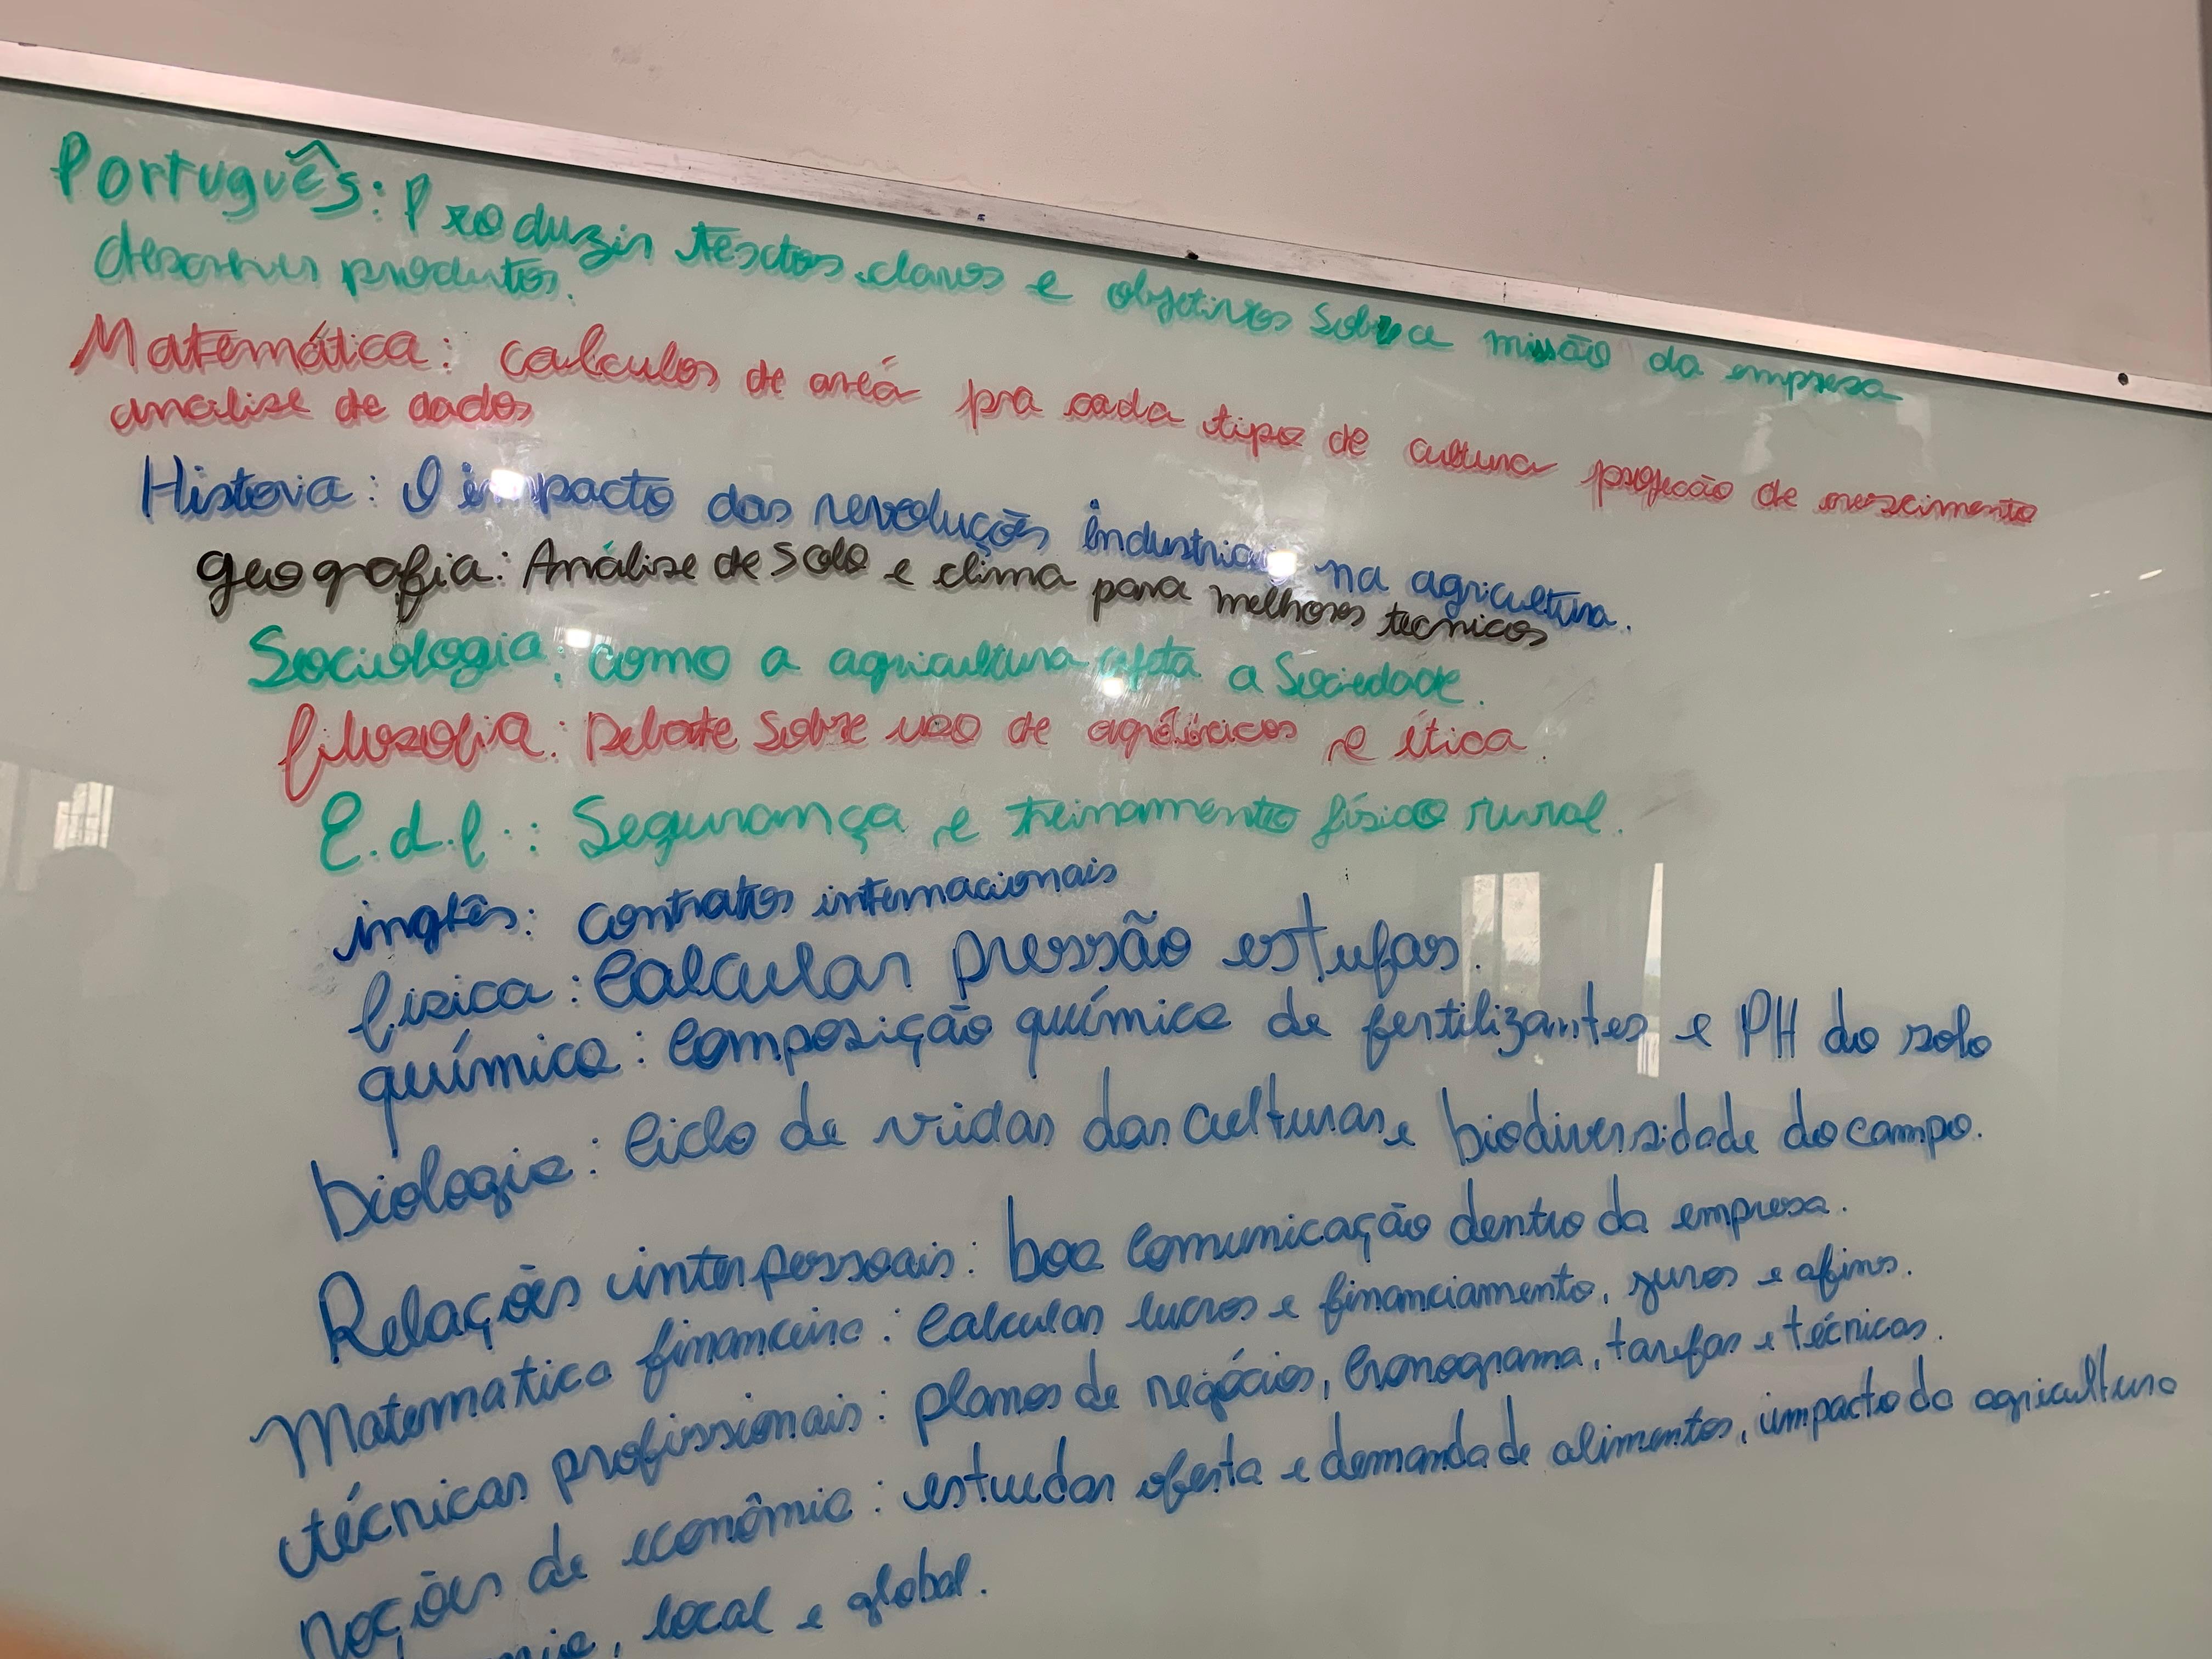 Português: Produzir textos claros e objetivos sobre a missão da empresa
descrever produtos.
Matemática: calculos de areá pra cada tipo de cultura projecão de crescimento
analise de dados
Historia: O impacto das revoluções industriais na agricultura.
geografia: Análise de solo e clima para melhores tecnicos
Sociologia: como a agricultura afeta a Sociedade.
filosofia: Debate Sobre uso de agrótoxicos e ética
E.d.f.: Segurança e treinamento físico rural.
inglês: contratos internacionais
fisica: Calcular pressão estufas.
química: Composição química de fertilizantes e PH do solo
biologia: Ciclo de vidas das culturas e biodiversidade do campo.
Relações interpessoais: boa Comunicação dentro da empresa.
Matematica financeira: Calcular lucros e financiamento, juros e afins.
técnicas profissionais: planos de negócios, Cronograma, tarefas e técnicas.
Noções de econômia: estudar oferta e demanda de alimentos, impacto da agricultura
local e global.